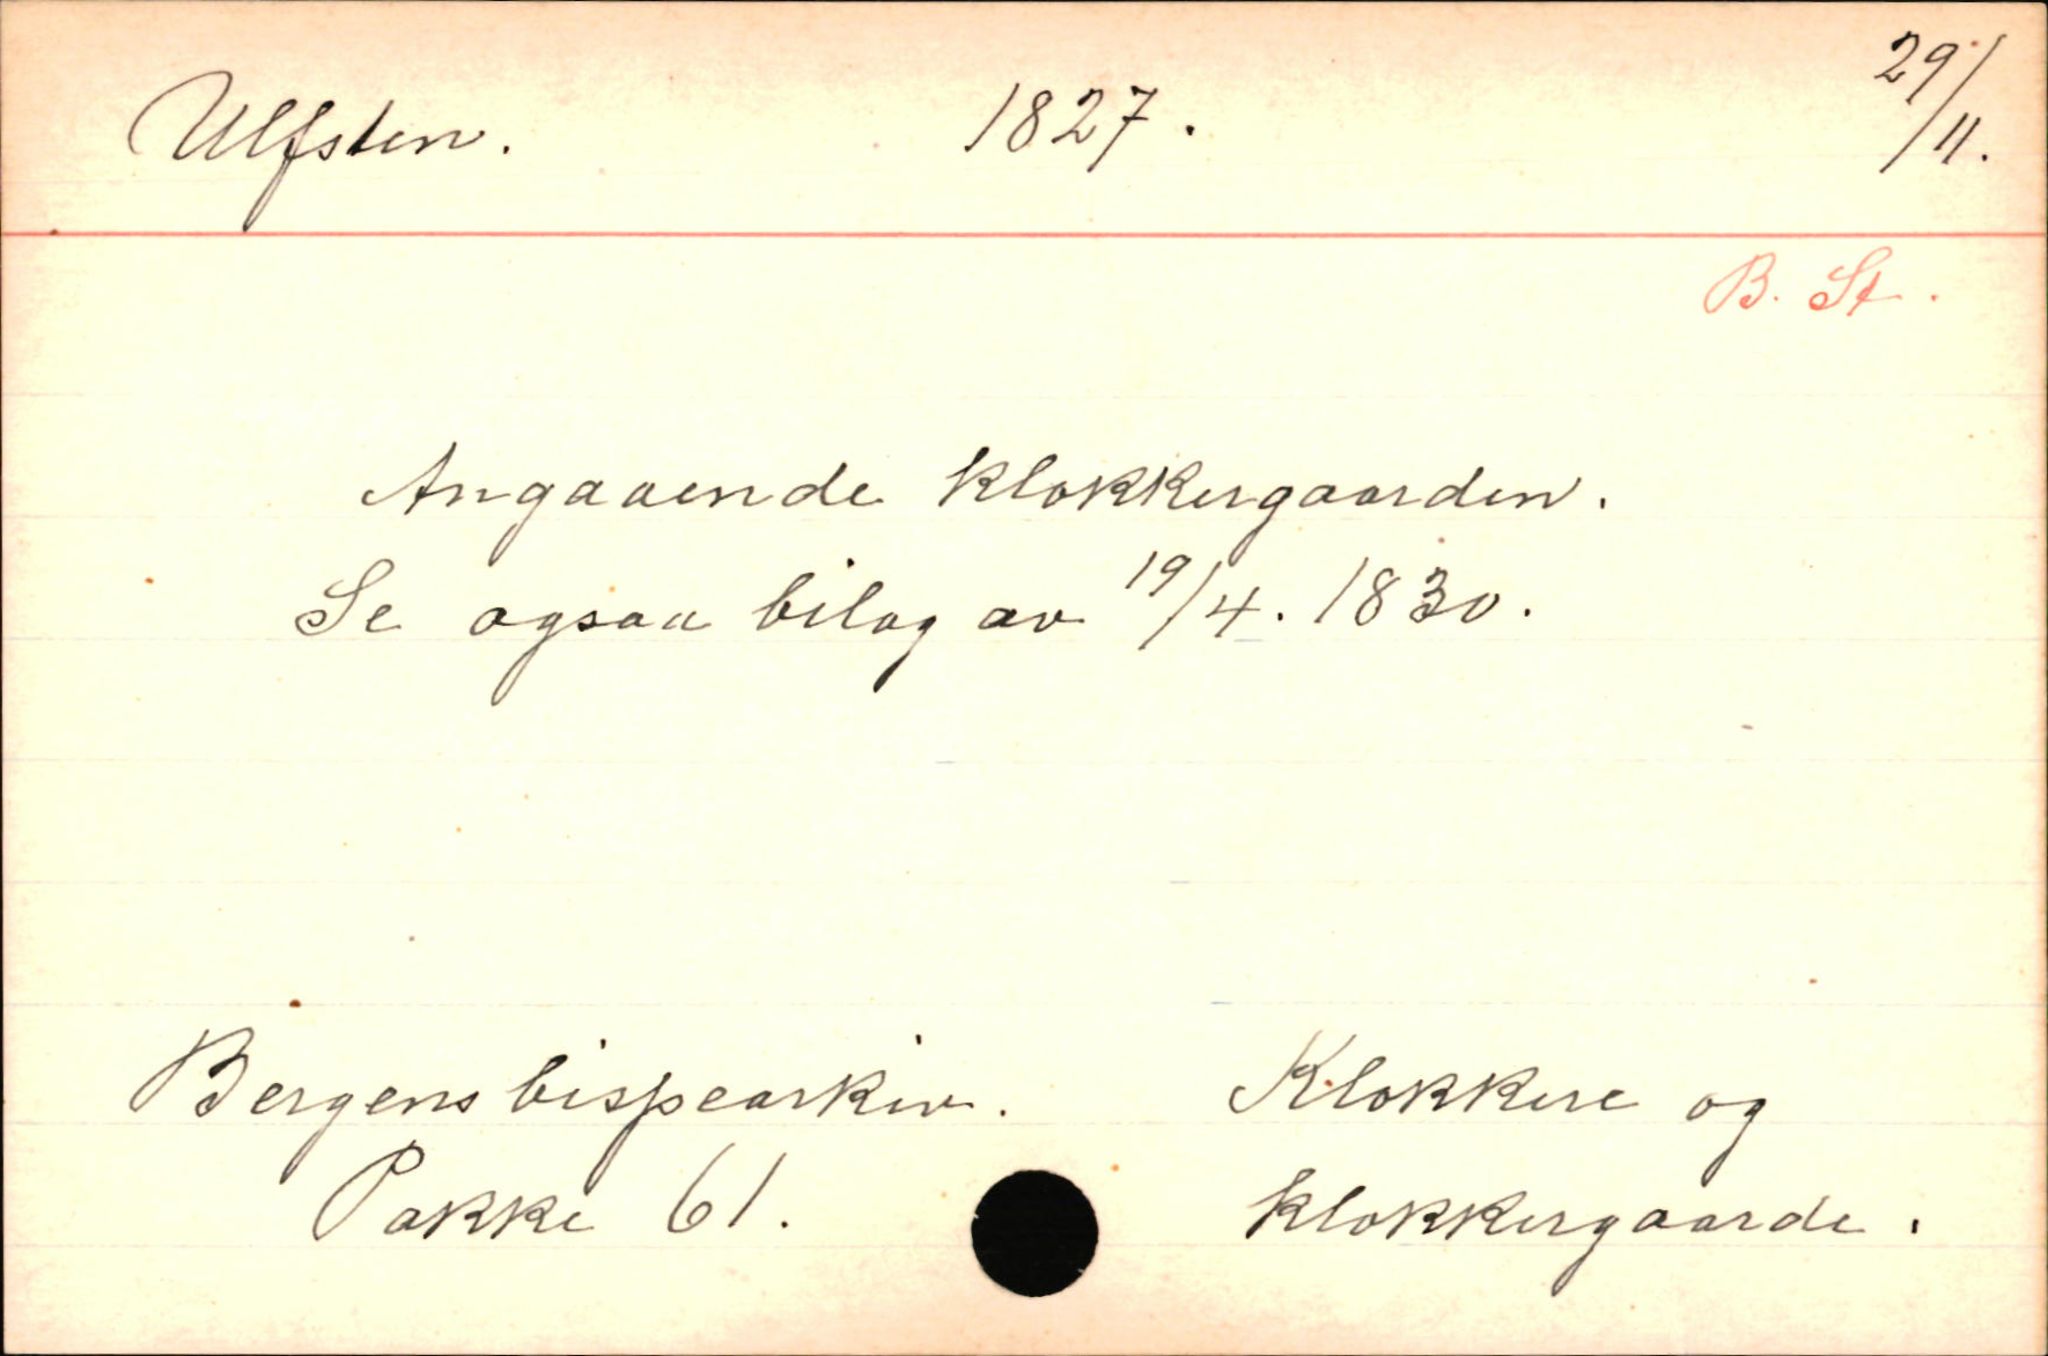 Ulfsten. 1827. 29/11.
B. St.
Angaaende klokkergaarden.
Se ogsaa bilag av 19/4. 1830.
Bergens bispearkiv. Klokkere og
Pakke 61. klokkergaarde.